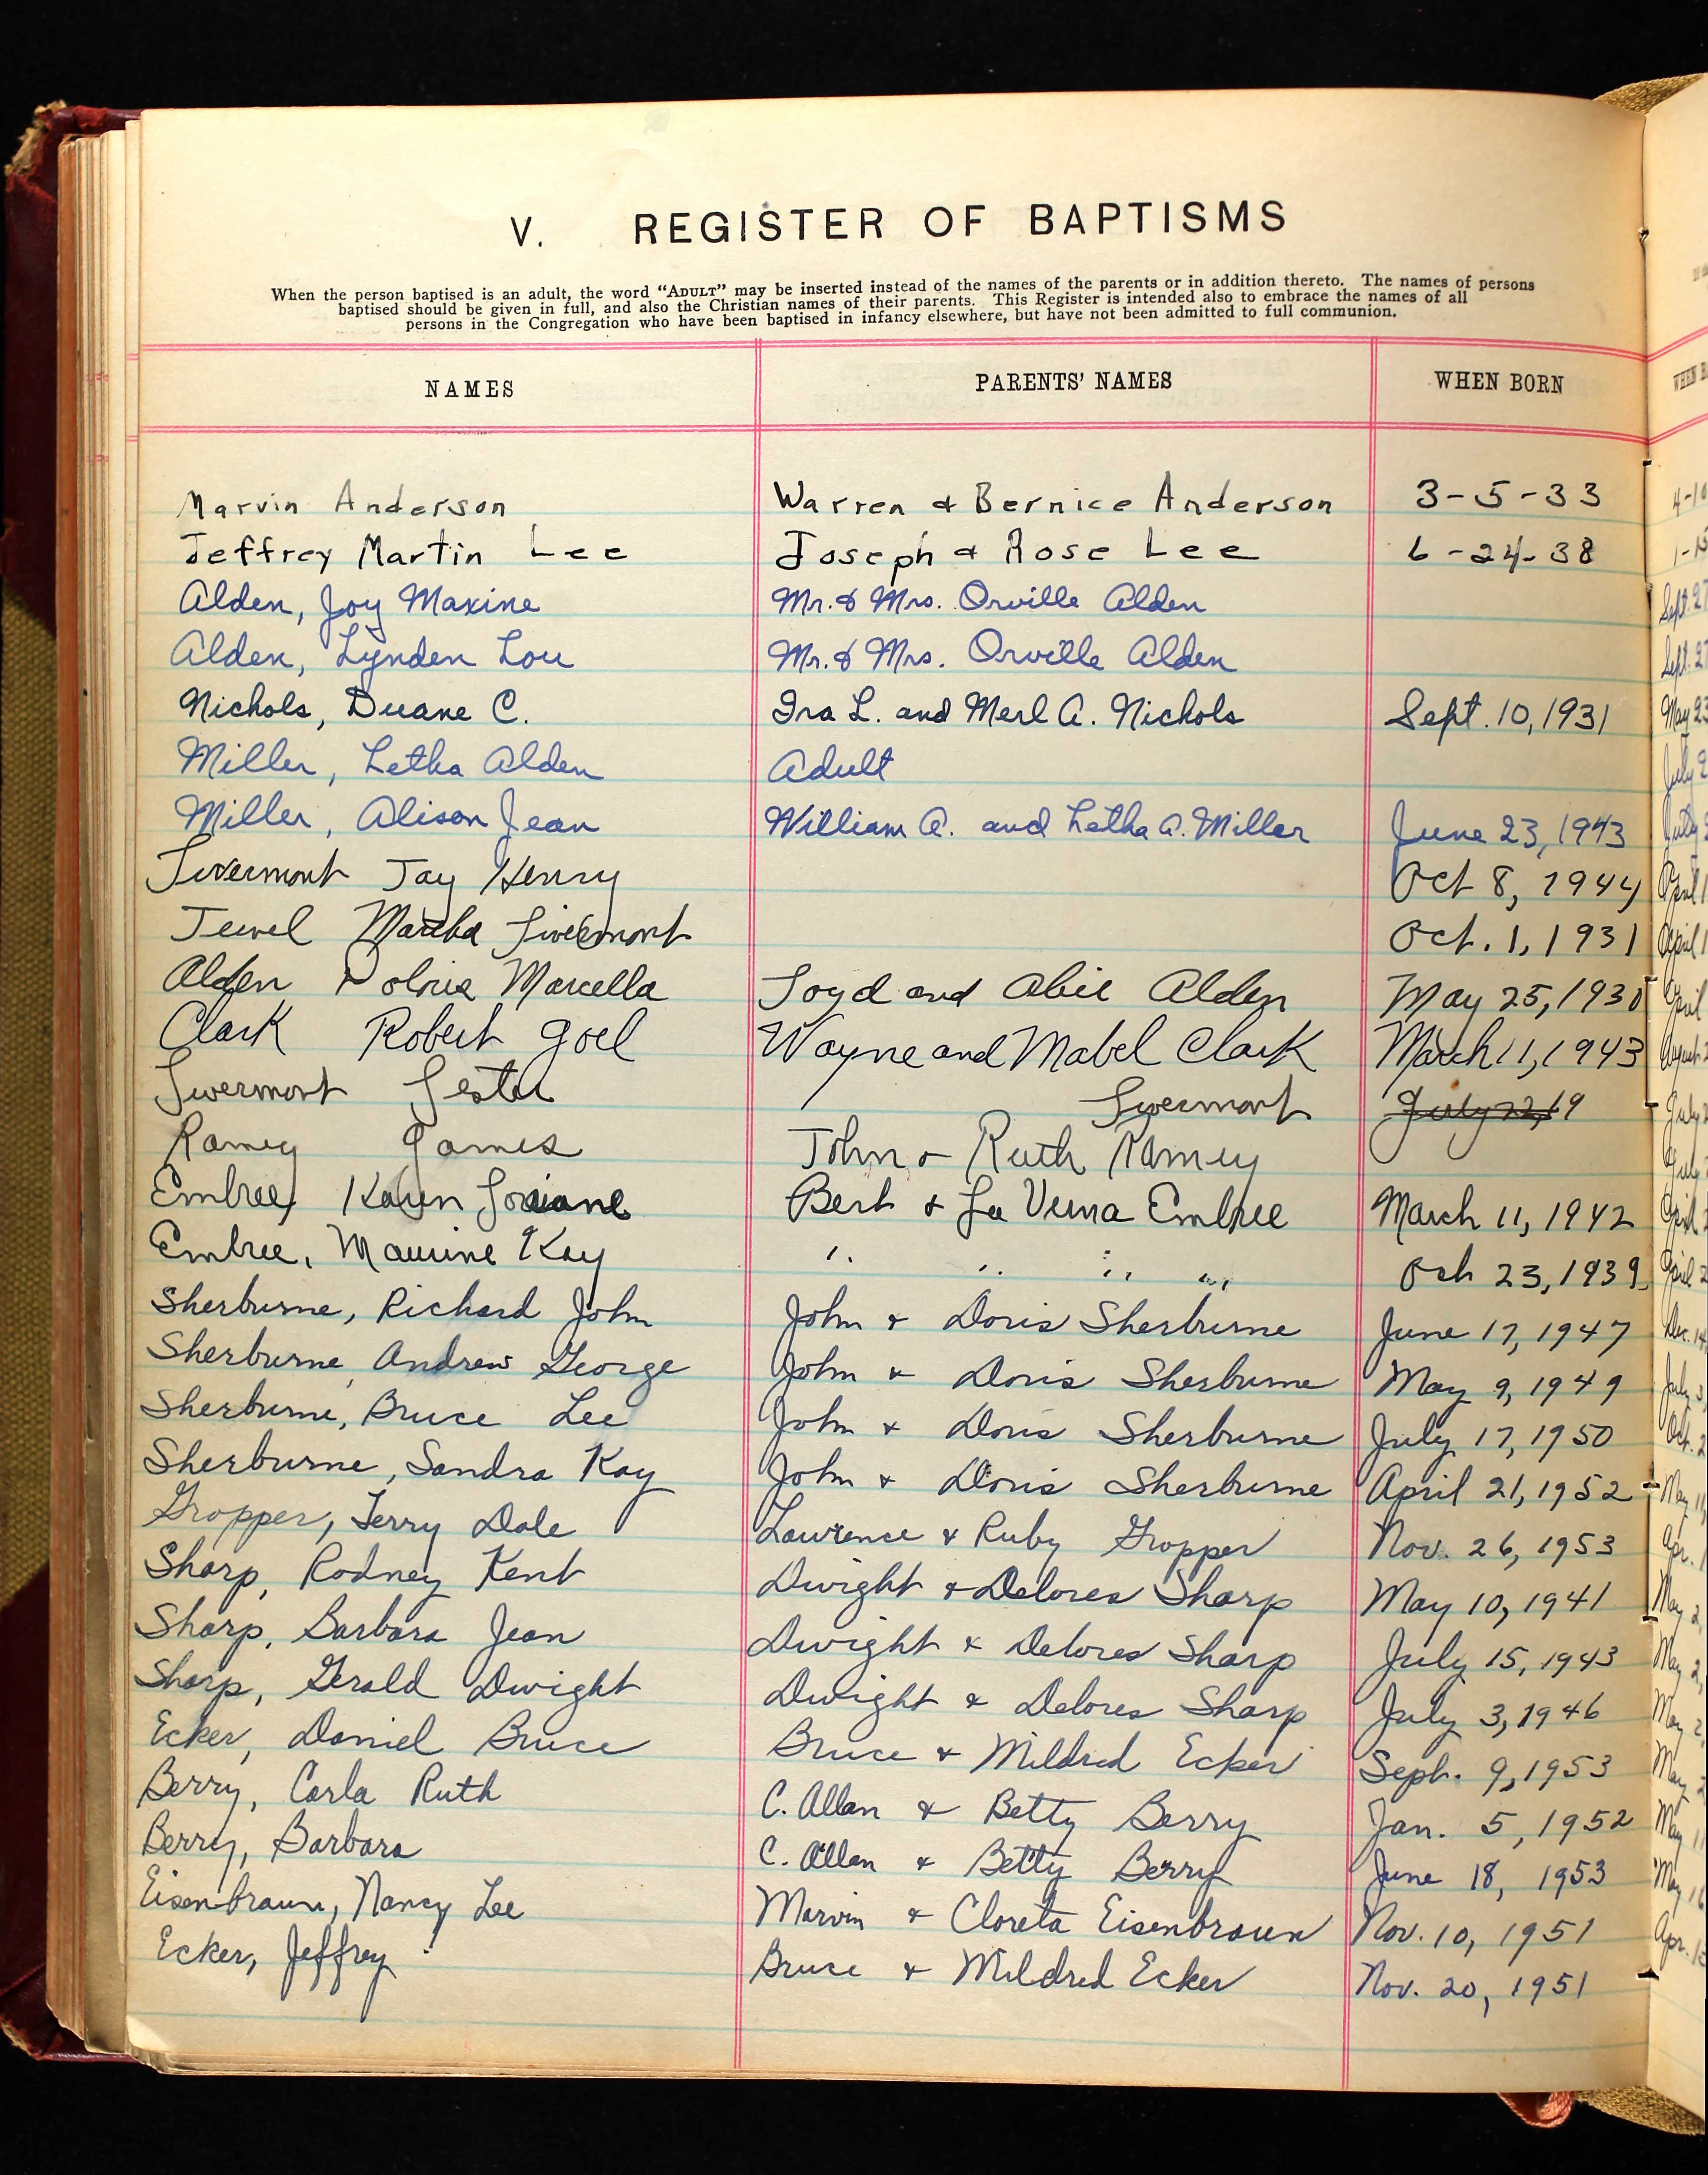 V. REGISTER OF BAPTISMS
When the person baptised is an adult, the word “ADULT” may be inserted instead of the names of the parents or in addition thereto. The names of persons
baptised should be given in full, and also the Christian names of their parents. This Register is intended also to embrace the names of all
persons in the Congregation who have been baptised in infancy elsewhere, but have not been admitted to full communion.
NAMES PARENTS' NAMES WHEN BORN WHEN
Marvin Anderson Warren & Bernice Anderson 3-5-33
Jeffrey Martin Lee Joseph & Rose Lee 6-24-38
Alden, Joy Maxine Mr. & Mrs. Orville Alden Sept. 27
Alden, Lynden Lou Mr. & Mrs. Orville Alden Sept. 27
Nichols, Duane C. Ira L. and Merl A. Nichols Sept. 10, 1931 May 23
Miller, Letha Alden Adult July
Miller, Alison Jean William A. and Letha A. Miller June 23, 1943 July
Livermont Jay Henry Oct 8, 1944 April
Jewel Martha Livermont Oct. 1, 1931 April
Alden Marcella Loyd and Alden May 25, 1930 April
Clark Robert Joel Wayne and Mabel Clark March 11, 1943 August
Livermont Lester Livermont July 22, 19 July
Ramey James John & Ruth Ramey July
Embree, Karen Embree Bert & La Verna Embree March 11, 1942 April
Embree, Maurine Kay " " " " Oct 23, 1939 April
Sherburne, Richard John John & Doris Sherburne June 17, 1947 Dec. 14
Sherburne, Andrew George John & Doris Sherburne May 9, 1949 July
Sherburne, Bruce Lee John & Doris Sherburne July 17, 1950 Oct.
Sherburne, Sandra Kay John & Doris Sherburne April 21, 1952 May
Gropper, Terry Dale Lawrence & Ruby Gropper Nov. 26, 1953 Apr.
Sharp, Rodney Kent Dwight & Delores Sharp May 10, 1941 May
Sharp, Barbara Jean Dwight & Delores Sharp July 15, 1943 May
Sharp, Gerald Dwight Dwight & Delores Sharp July 3, 1946 May
Ecker, Daniel Bruce Bruce & Mildred Ecker Sept. 9, 1953 May
Berry, Carla Ruth C. Allan & Betty Berry Jan. 5, 1952 May
Berry, Barbara C. Allan & Betty Berry June 18, 1953 May
Eisenbraun, Nancy Lee Marvin & Cloreta Eisenbraun Nov. 10, 1951 Apr.
Ecker, Jeffrey Bruce & Mildred Ecker Nov. 20, 1951